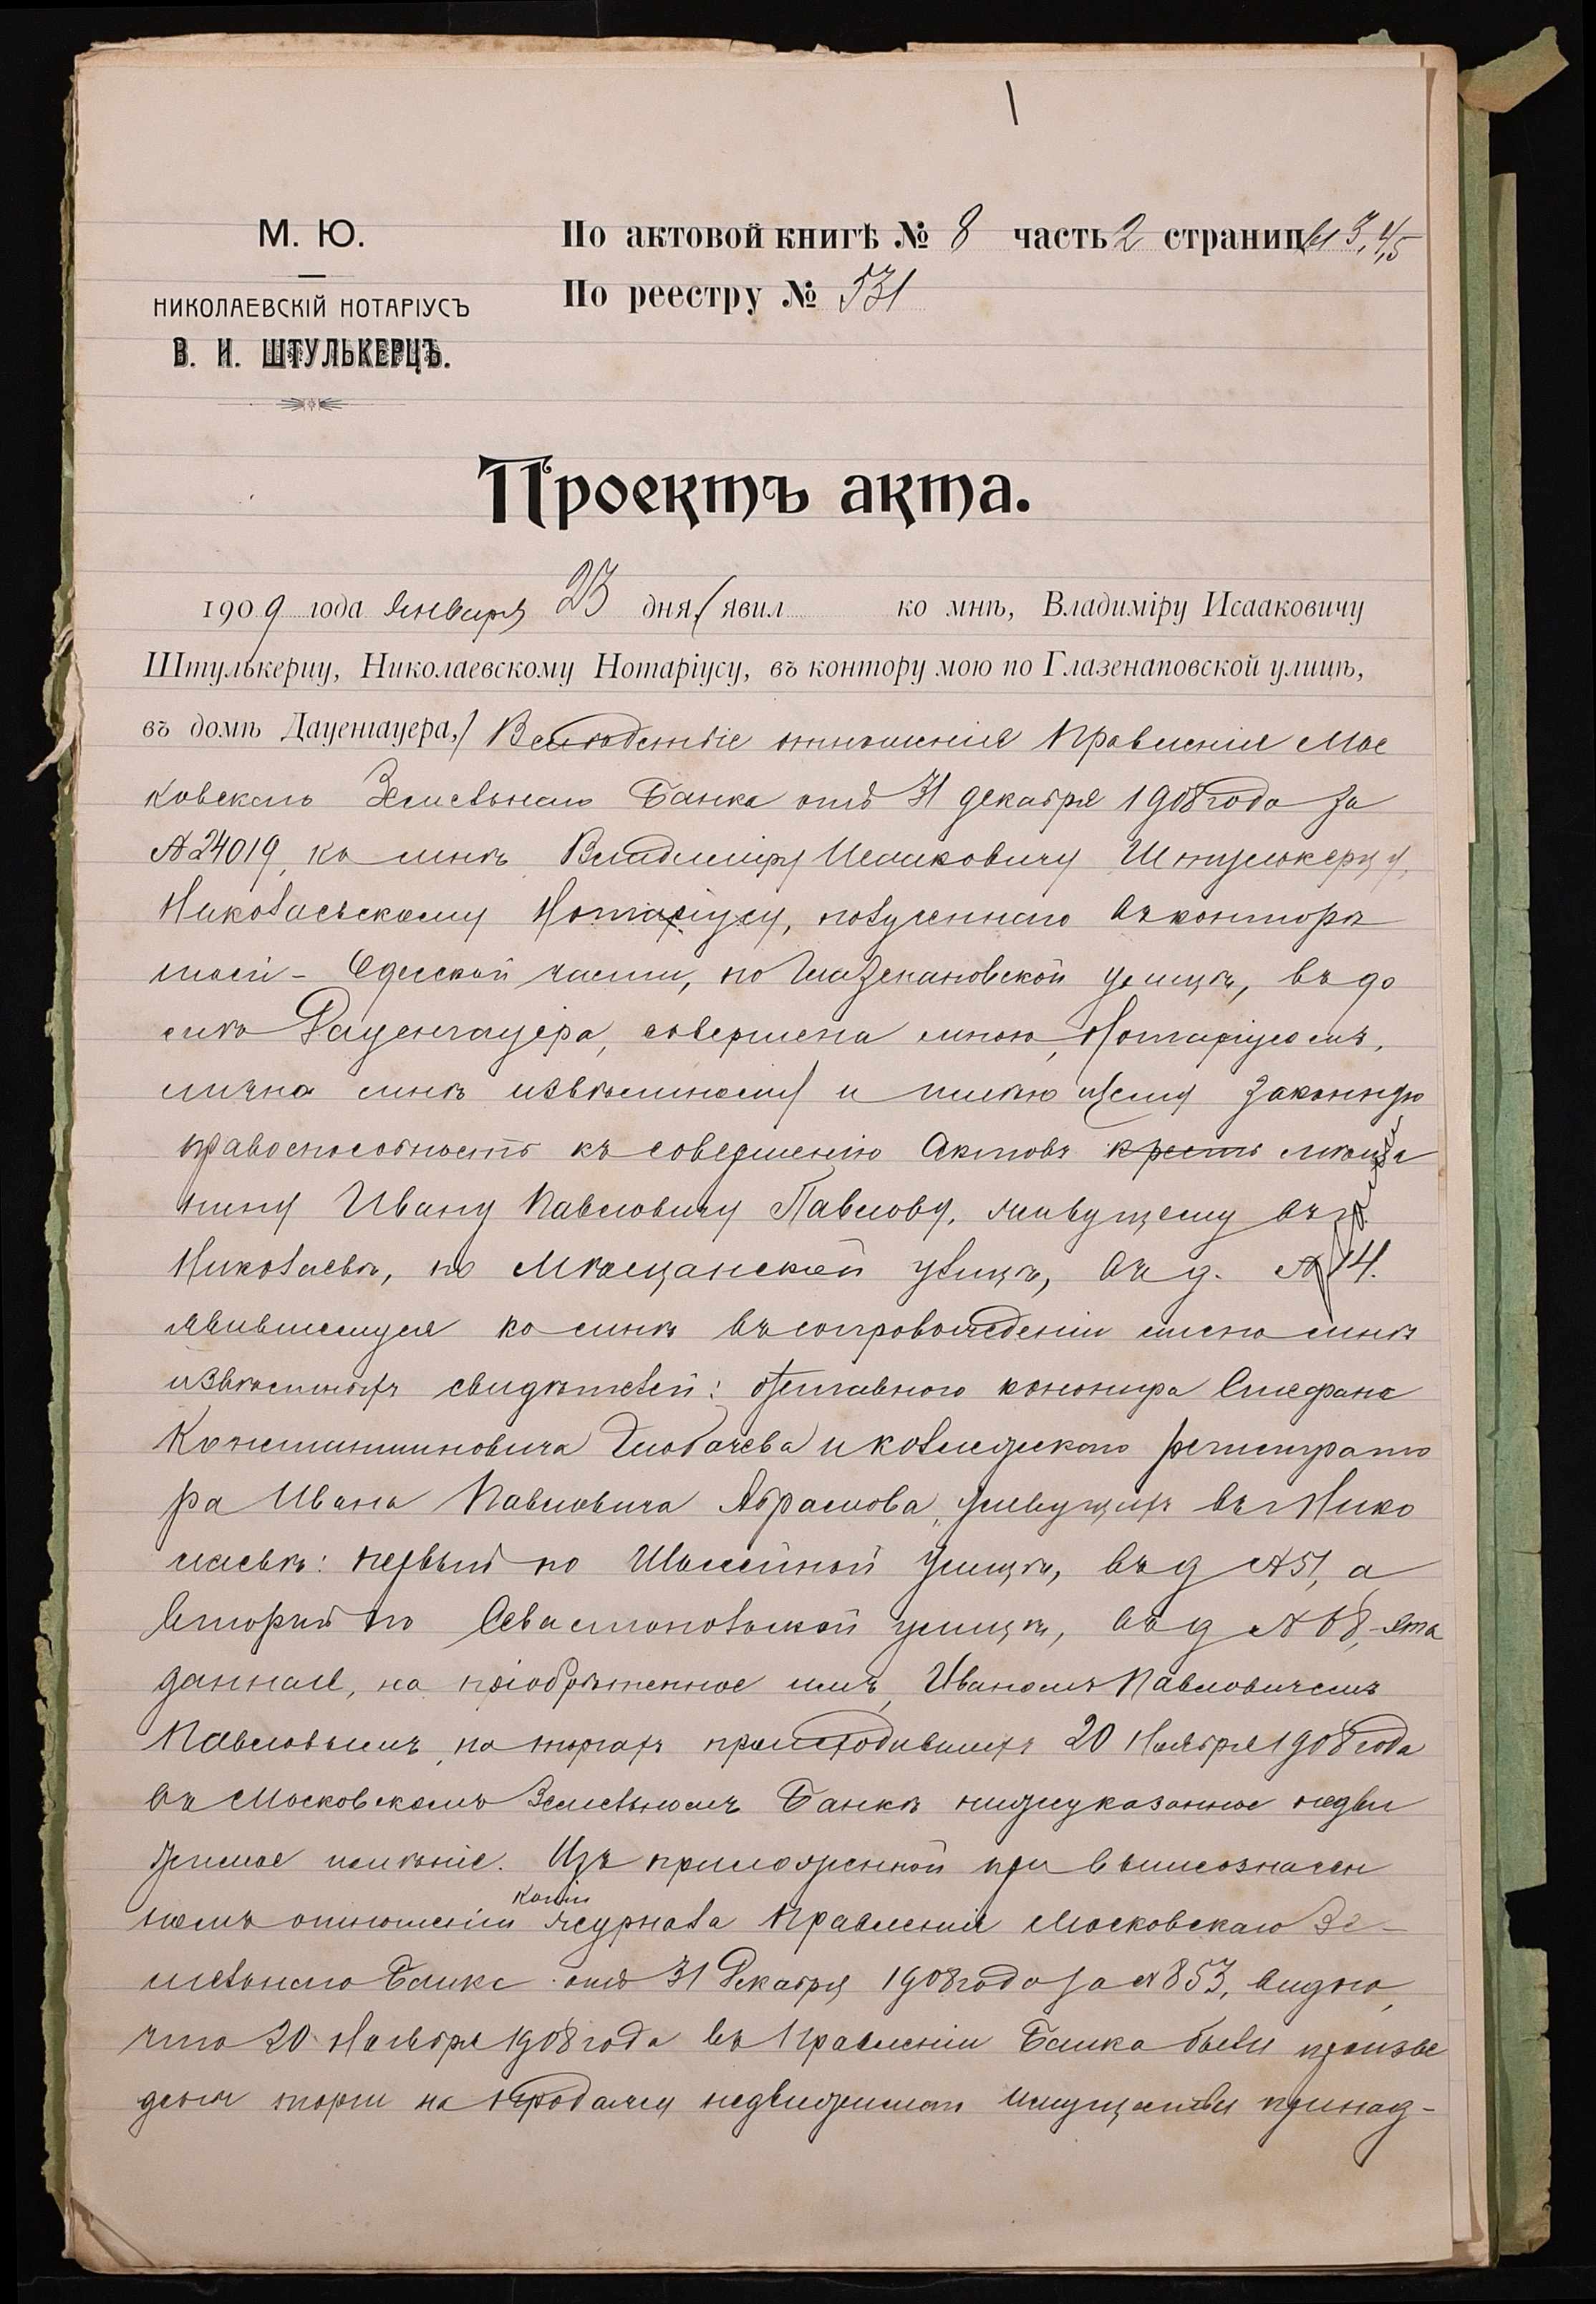 1
М. Ю.
НИКОЛАЕВСКІЙ НОТАРІУСЪ
В. И. ШТУЛЬКЕРЦЪ.
По актовой книгѣ № 8 часть 2 страницы 3, 4, 5
По реестру № 531
Проектъ акта.
1909 года Января 23 дня, (явил ко мнѣ, Владиміру Исааковичу
Штулькерцу, Николаевскому Нотаріусу, въ контору мою по Глазенаповской улицѣ,
въ домѣ Дауенгауера,) Вслѣдствіе отношенія Правленія Мос
ковскаго Земельнаго Банка отъ 31 декабря 1908 года за
№ 24019, ко мнѣ Владиміру Исааковичу Штулькерцу,
Николаевскому Нотаріусу, полученнаго въ конторѣ
моей - Одесской части, по Глазенаповской улицѣ, въ до
мѣ Дауенгауера, совершена мною, Нотаріусомъ,
лично мнѣ извѣстному и имѣющему законную
правоспособность къ совершенію актовъ крест мѣща
нину Ивану Павловичу Павлову, живущему въ г.
Николаевѣ, по Мѣщанской улицѣ, въ д. № 14.
явившемуся ко мнѣ въ сопровожденіи лично мнѣ
извѣстныхъ свидѣтелей: отставного канонира Стефана
Константиновича Глобачева и коллежскаго регистрато
ра Ивана Павловича Абрамова, живущихъ въ г. Нико
лаевѣ: первый по Шоссейной улицѣ, въ д № 51, а
второй по Севастопольской улицѣ, въ д № 68, - эта
данная, на пріобрѣтенное имъ, Иваномъ Павловичемъ
Павловымъ, на торгахъ происходившихъ 20 Ноября 1908 года
въ Московскомъ Земельномъ Банкѣ нижеуказанное недви
жимое имѣніе. Изъ приложенной при вышеозначен
копіи
номъ отношеніи журнала Правленія Московскаго Зе-
мельнаго Банка отъ 31 Декабря 1908 года за № 853, видно,
что 20 Ноября 1908 года въ Правленіи Банка были произве
дены торги на продажу недвижимаго имущества принад-